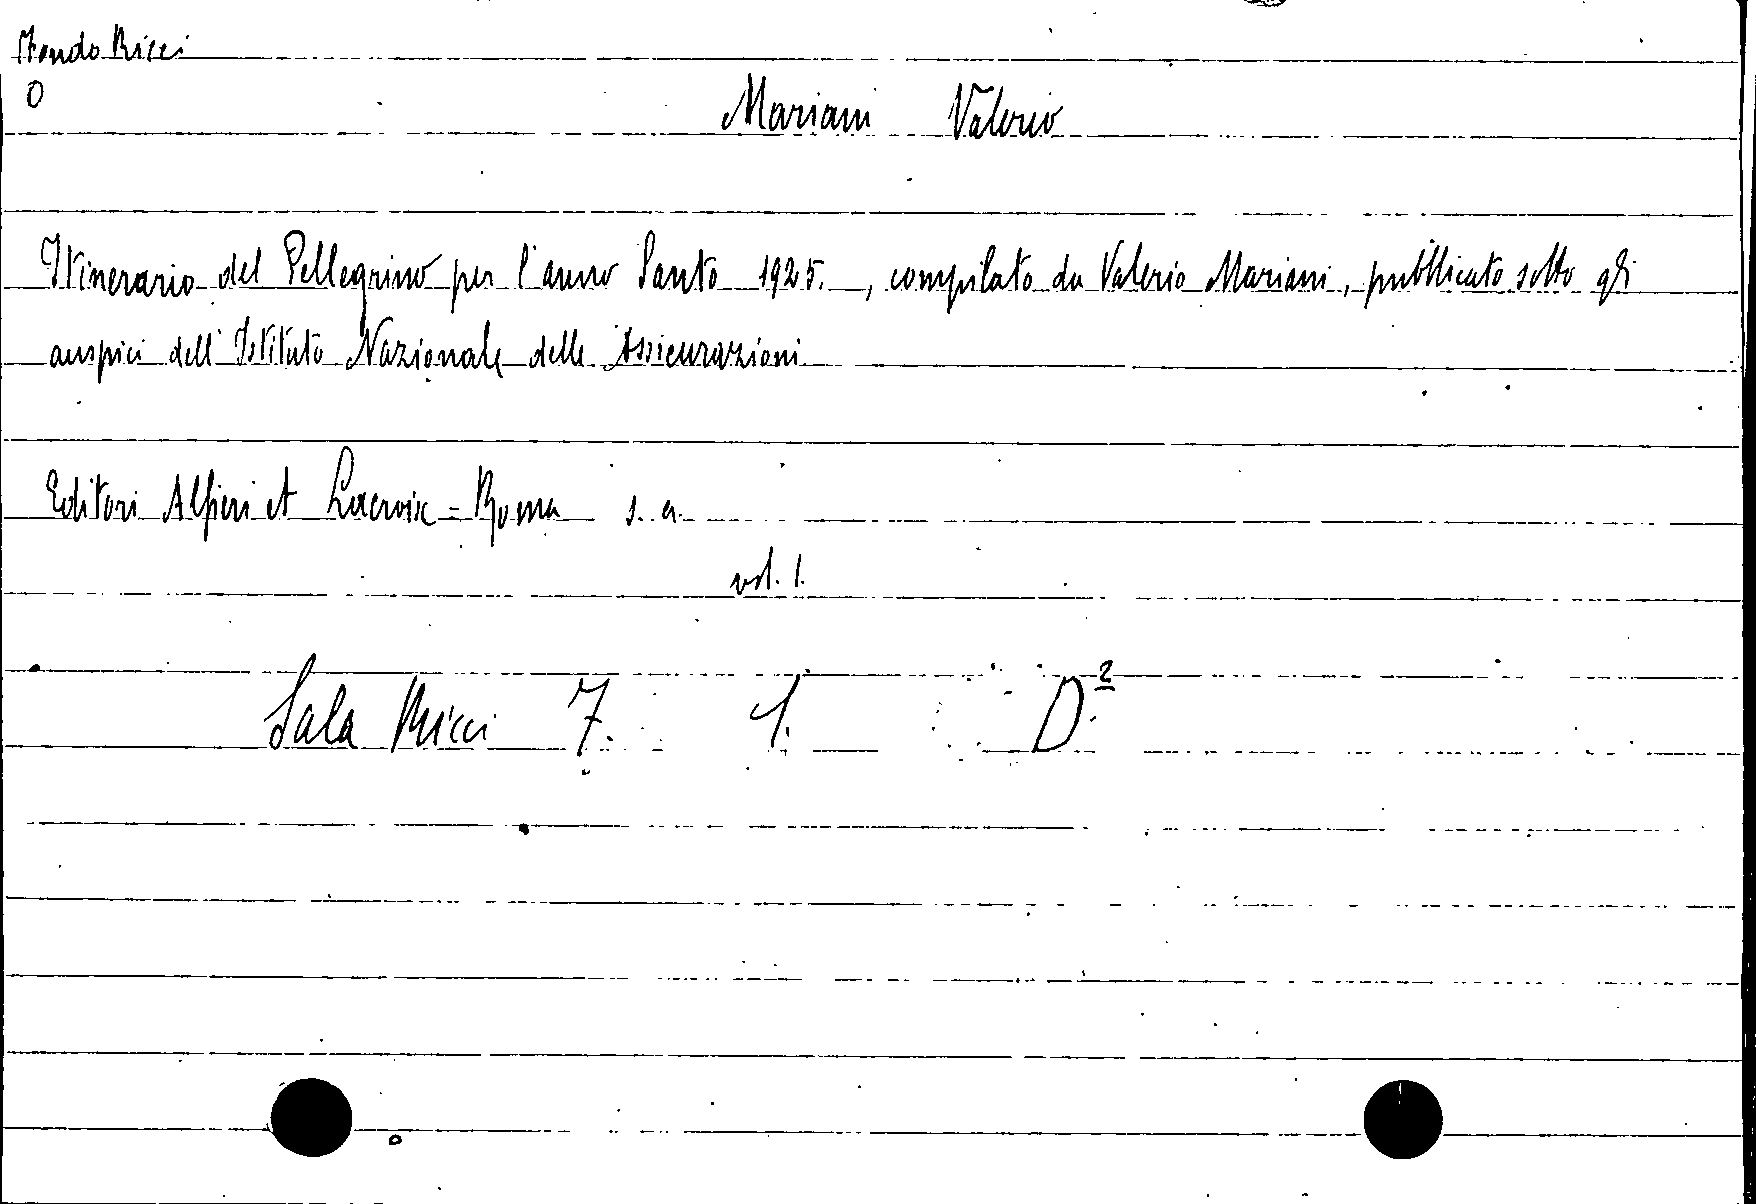 Fondo Ricci
O
Mariani Valerio
Itinerario del Pellegrino per l'anno Santo 1925. , compilato da Valerio Mariani, pubblicato sotto gli
auspici dell'Istituto Nazionale delle Assicurazioni
Editori Alfieri et Lacroix = Roma s. a.
vol. 1.
Sala Ricci 7. 1. D.2